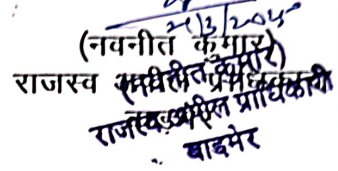 21/3/2025
(नवनीत कुमार)
राजस्व अपील प्राधिकारी
(नवनीत कुमार)
राजस्व अपील प्राधिकारी
बाड़मेर